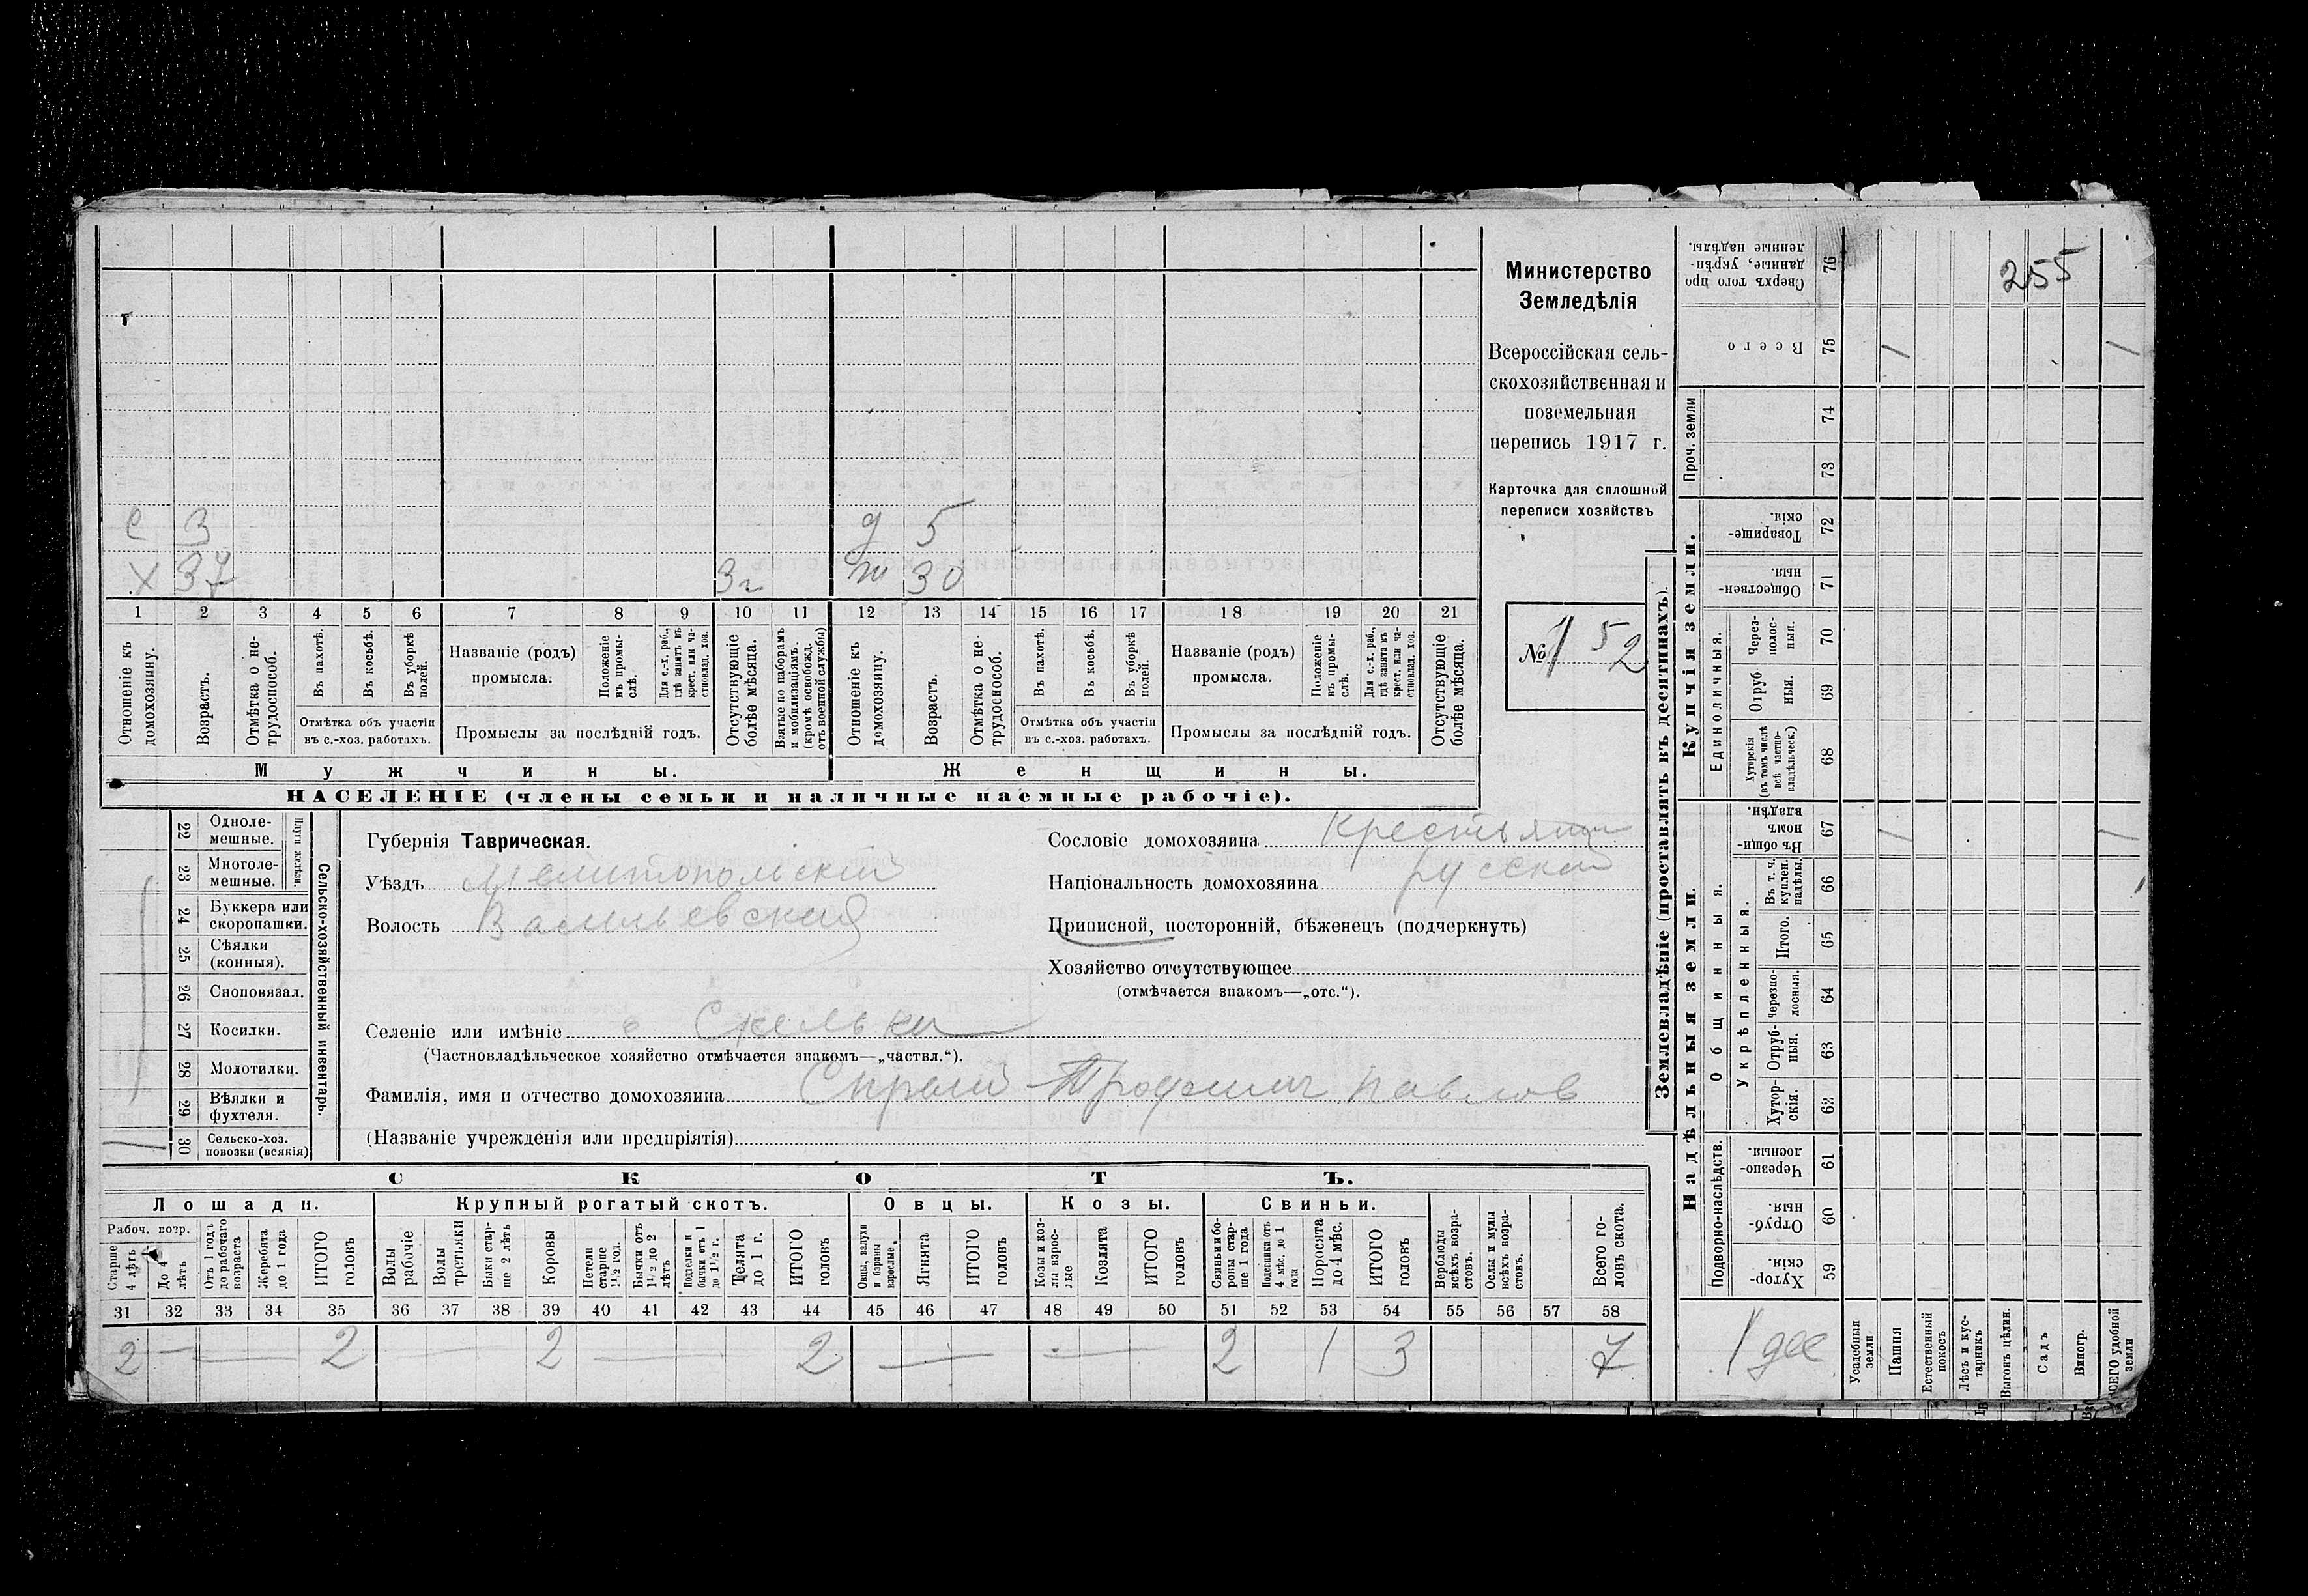 255
Министерство
Земледѣлія
Всероссійская сель-
скохозяйственная и
поземельная
перепись 1917 г.
Карточка для сплошной
переписи хозяйствъ
№ 152
с 3 д 5
х 37 3г ж 30
1 2 3 4 5 6 7 8 9 10 11 12 13 14 15 16 17 18 19 20 21
Отношеніе къ домохозяину.
Возрастъ.
Отмѣтка о не-трудоспособ.
Въ пахотѣ.
Въ косьбѣ.
Въ уборкѣ полей.
Отмѣтка объ участіи
въ с.-хоз. работахъ.
Названіе (родъ)
промысла.
Положеніе въ промы-слѣ.
Для с.-х. раб., гдѣ занятъ въ крест. или ча-стновлад. хоз.
Промыслы за послѣдній годъ.
Отсутствующіе болѣе мѣсяца.
Взятые по наборамъ и мобилизаціямъ. (кромѣ освобожд. отъ военной службы)
Отношеніе къ домохозяину.
Возрастъ.
Отмѣтка о не-трудоспособ.
Въ пахотѣ.
Въ косьбѣ.
Въ уборкѣ полей.
Отмѣтка объ участіи
въ с.-хоз. работахъ.
Названіе (родъ)
промысла.
Положеніе въ промы-слѣ.
Для с.-х. раб., гдѣ занята въ крест. или ча-стновлад. хоз.
Промыслы за послѣдній годъ.
Отсутствующіе болѣе мѣсяца.
Мужчины.
Женщины.
НАСЕЛЕНІЕ (члены семьи и наличные наемные рабочіе).
Сельско-хозяйственный инвентарь.
Плуги желѣзн.
22 Однолемешные.
23 Многолемешные.
24 Буккера или скоропашки.
25 Сѣялки (конныя).
26 Сноповязал.
27 Косилки.
28 Молотилки.
29 Вѣялки и фухтеля.
30 Сельско-хоз. повозки (всякія)
Губернія Таврическая.
Уѣздъ Мелитопольскій
Волость Васильевская
Сословіе домохозяина Крестьянин
Національность домохозяина русский
Приписной, посторонній, бѣженецъ (подчеркнуть)
Хозяйство отсутствующее
(отмѣчается знакомъ—„отс.“).
Селеніе или имѣніе с Скельки
(Частновладѣльческое хозяйство отмѣчается знакомъ—„частвл.“).
Фамилія, имя и отчество домохозяина Трофим Павлов
(Названіе учрежденія или предпріятія)
СКОТЪ.
Лошади.
Крупный рогатый скотъ.
Овцы.
Козы.
Свиньи.
Рабоч. возр.
Старше 4 лѣтъ
До 4 лѣтъ
Отъ 1 года до рабочаго возраста
Жеребята до 1 года
ИТОГО головъ
Волы рабочіе
Волы третьяки
Быки стар-ше 2 лѣтъ
Коровы
Нетели старше 1½ год.
Бычки отъ 1½ до 2 лѣтъ
Подтелки и бычки отъ 1 до 1½ г.
Телята до 1 г.
ИТОГО головъ
Овцы, валухи и бараны взрослые.
Ягнята
ИТОГО головъ
Козы и коз-лы взрос-лые
Козлята
ИТОГО головъ
Свиньи и бо-ровы стар-ше 1 года
Подсвинки отъ 4 мѣс. до 1 года
Поросята до 4 мѣс.
ИТОГО головъ
Верблюды всѣхъ возра-стовъ.
Ослы и мулы всѣхъ возра-стовъ.
Всего го-ловъ скота.
31 32 33 34 35 36 37 38 39 40 41 42 43 44 45 46 47 48 49 50 51 52 53 54 55 56 57 58
2 — — 2 — 2 — 2 — — 2 1 3 7
Землевладѣніе (проставлять въ десятинахъ).
Купчія земли.
Надѣльныя земли.
Сверхъ того про данные, укрѣп-ленные надѣлы. 76
Всего 75
Проч. земли
74
73
Товарище-скія. 72
Обществен-ныя. 71
Единоличныя.
Через-полос-ныя. 70
Отруб-ныя. 69
Хуторскія (въ томъ числѣ всѣ частно-владѣльческ.) 68
Въ общин-номъ владѣн. 67
Общинныя.
Укрѣпленныя.
Въ т. ч. куплен. надѣлы. 66
Итого. 65
Черезпо-лосныя. 64
Отруб-ныя. 63
Хутор-скія. 62
Подворно-наслѣдств.
Черезпо-лосныя. 61
Отруб-ныя. 60
Хутор-скія. 59
1 дес
Усадебныя земли
Пашня
Естественный покосъ
Лѣсъ и кус-тарникъ
Выгонъ цѣлин.
Садъ
Виногр.
ВСЕГО удобной земли